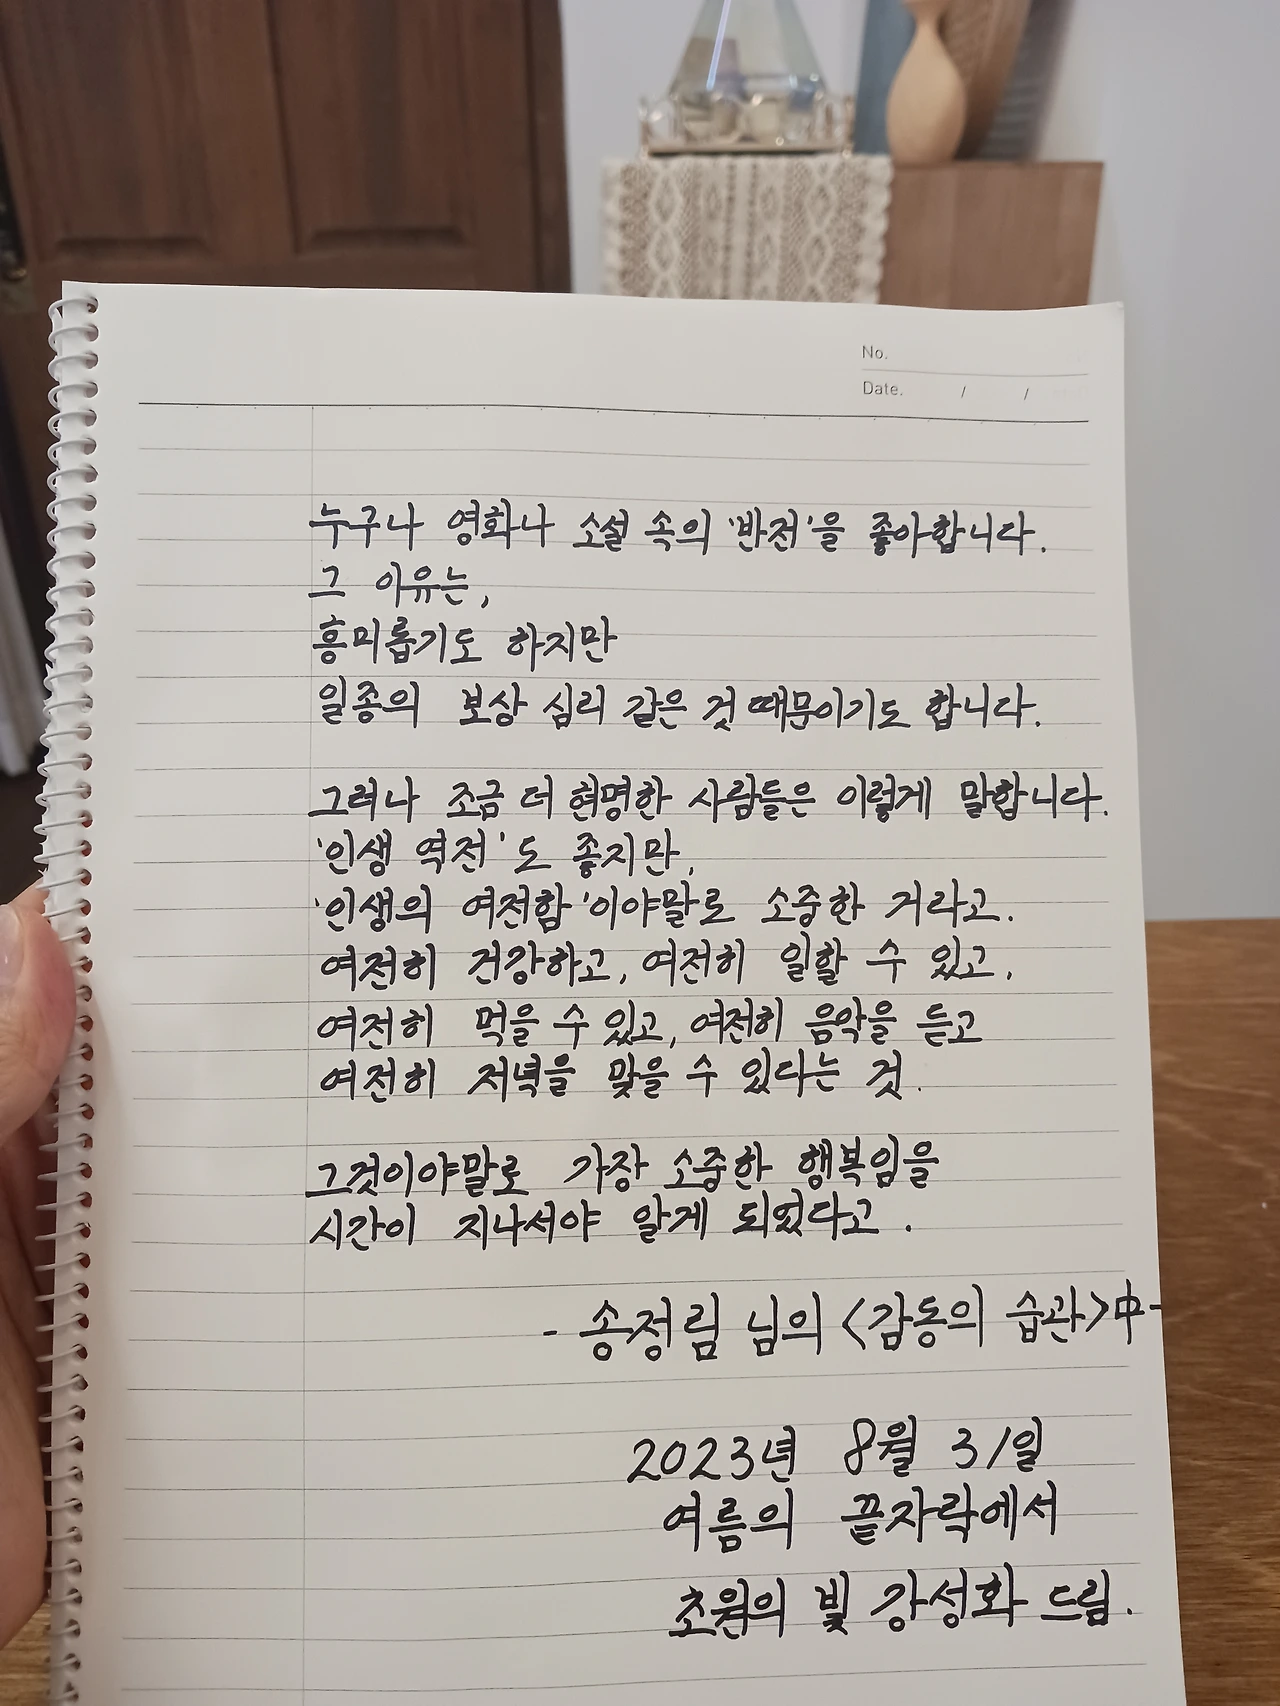 No.
Date. / /
누구나 영화나 소설 속의 '반전'을 좋아합니다.
그 이유는,
흥미롭기도 하지만
일종의 보상 심리 같은 것 때문이기도 합니다.
그러나 조금 더 현명한 사람들은 이렇게 말합니다.
'인생 역전'도 좋지만,
'인생의 여전함'이야말로 소중한 거라고.
여전히 건강하고, 여전히 일할 수 있고,
여전히 먹을 수 있고, 여전히 음악을 듣고
여전히 저녁을 맞을 수 있다는 것.
그것이야말로 가장 소중한 행복임을
시간이 지나서야 알게 되었다고.
- 송정림 님의 <감동의 습관>中-
2023년 8월 31일
여름의 끝자락에서
초원의 빛 강성화 드림.